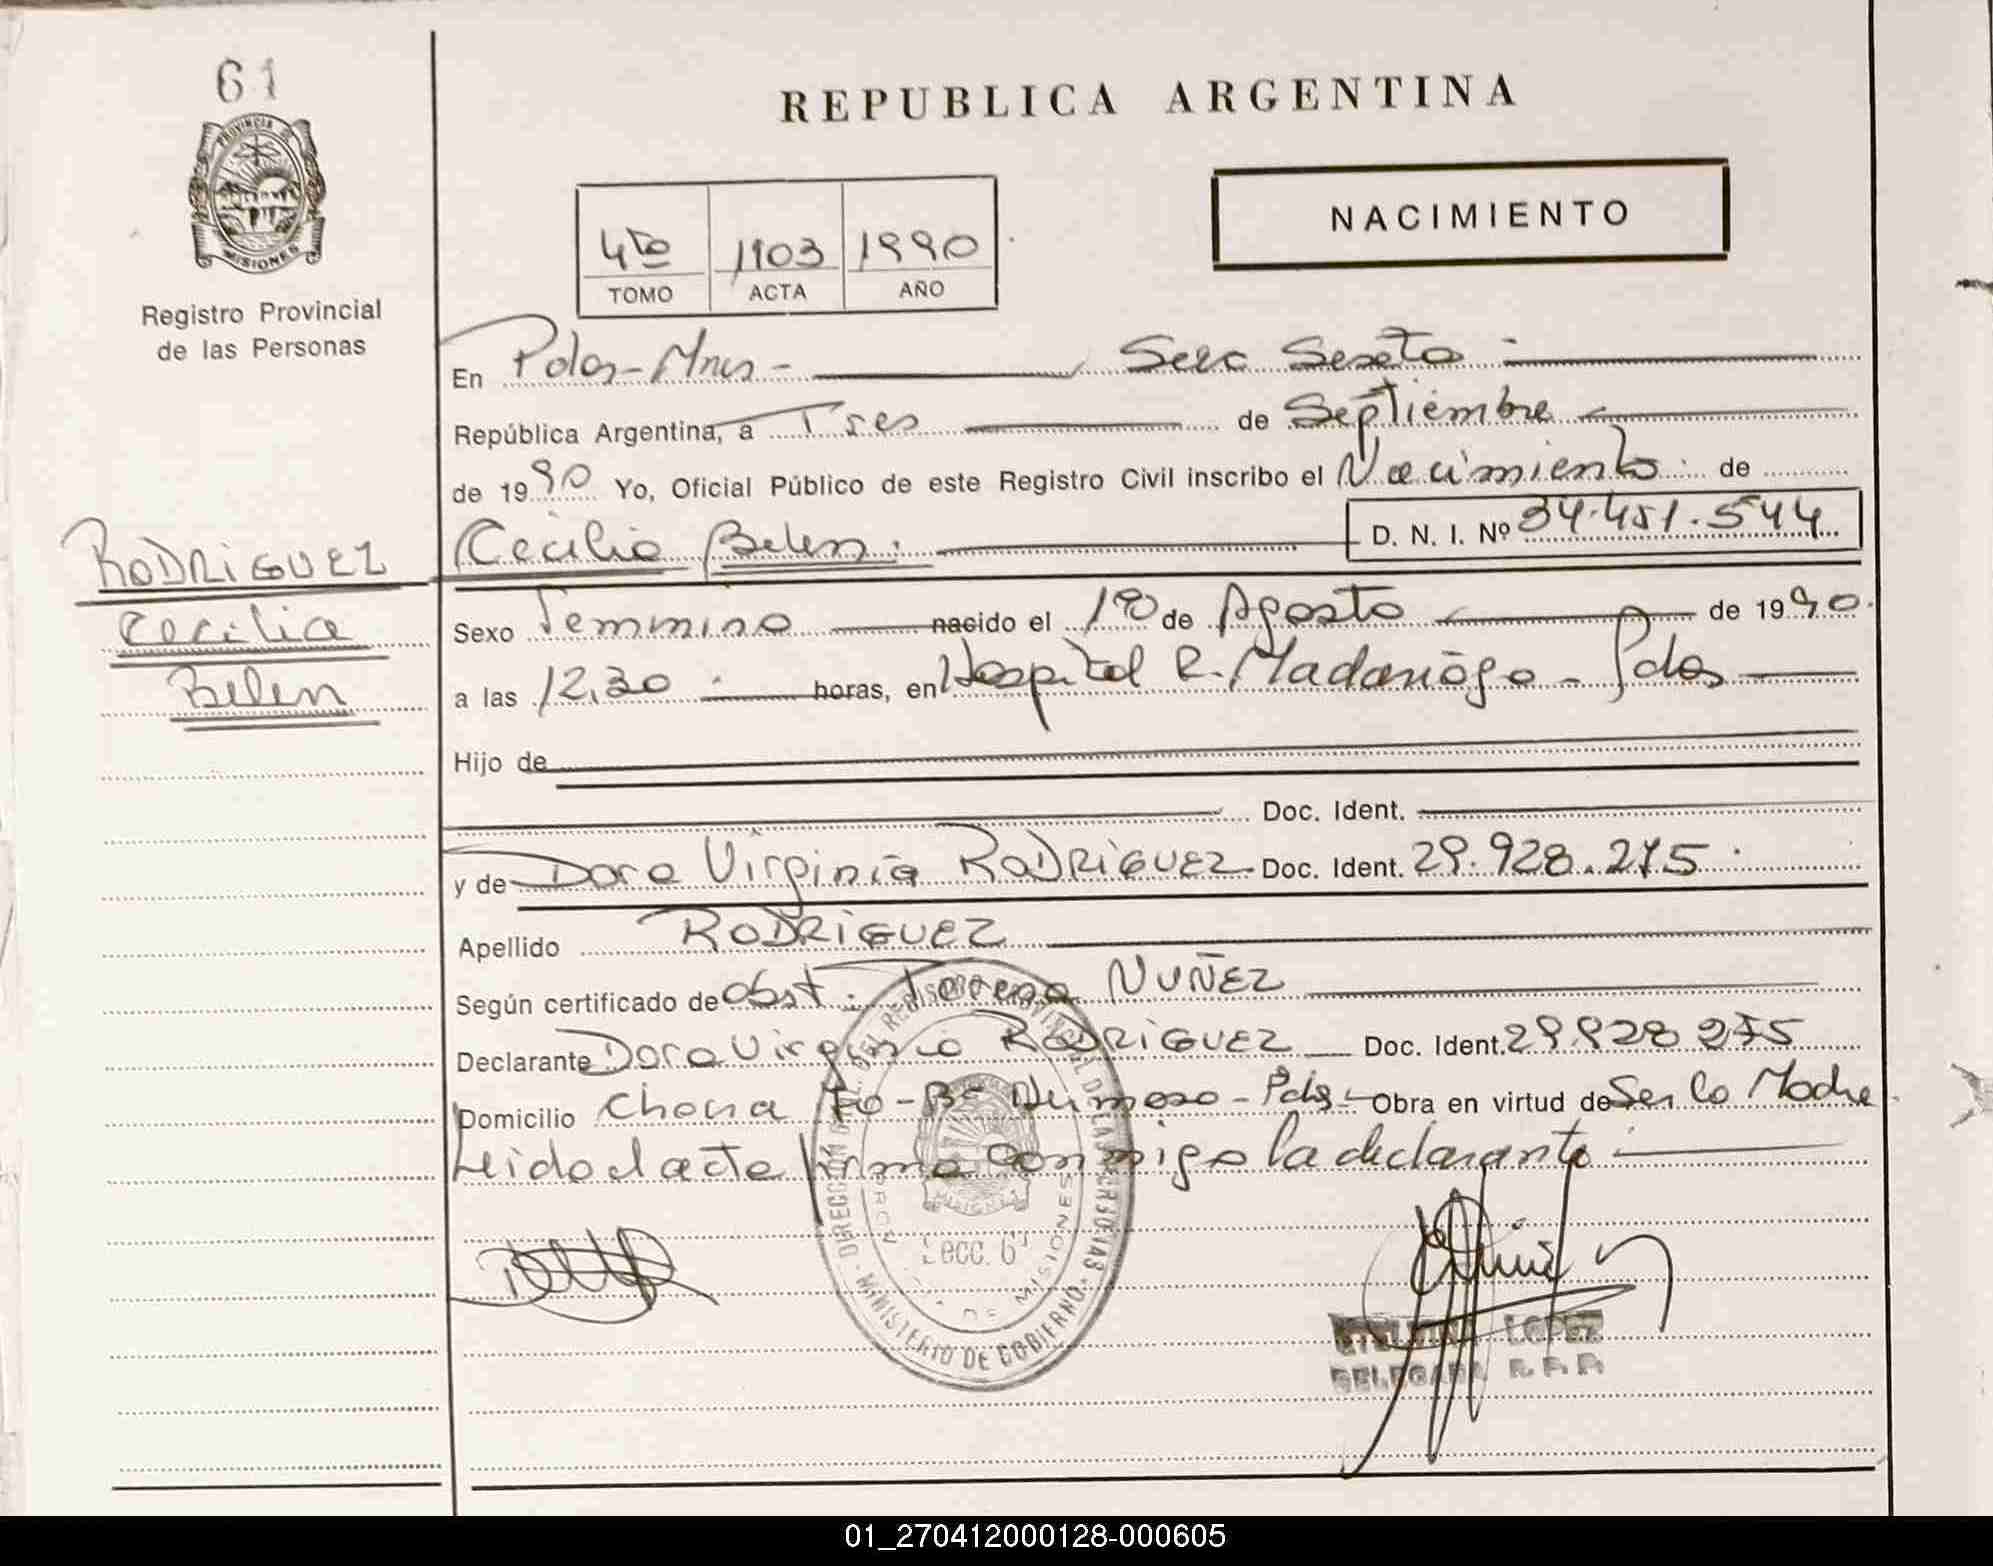 61
REPUBLICA ARGENTINA
PROVINCIA DE MISIONES
Registro Provincial
de las Personas
4to 1103 1990
TOMO ACTA AÑO
NACIMIENTO
En Pdas-Mnes- Secc Sexta
República Argentina, a Tres de Septiembre
de 1990 Yo, Oficial Público de este Registro Civil inscribo el Nacimiento de
Cecilia Belen. D. N. I. Nº 34.451.544
RODRIGUEZ
Cecilia
Belen
Sexo Femenino nacido el 1º de Agosto de 1990.
a las 12,30 horas, en Hospital R. Madariaga - Pdas
Hijo de
Doc. Ident.
y de Dora Virginia RODRIGUEZ Doc. Ident. 29.928.275
Apellido RODRIGUEZ
Según certificado de obst. Teresa NUÑEZ
Declarante Dora Virginia RODRIGUEZ Doc. Ident. 29.928 275
Domicilio Chacra - Bº Hermoso - Pdas - Obra en virtud de Ser la Madre
Leido el acta firma conmigo la declarante
DIRECCIÓN GRAL. DEL REGISTRO PROVINCIAL DE LAS PERSONAS
MINISTERIO DE GOBIERNO
Secc. 6ª
DE MISIONES
LOPEZ
DELEGADA R.P.P.
01_270412000128-000605